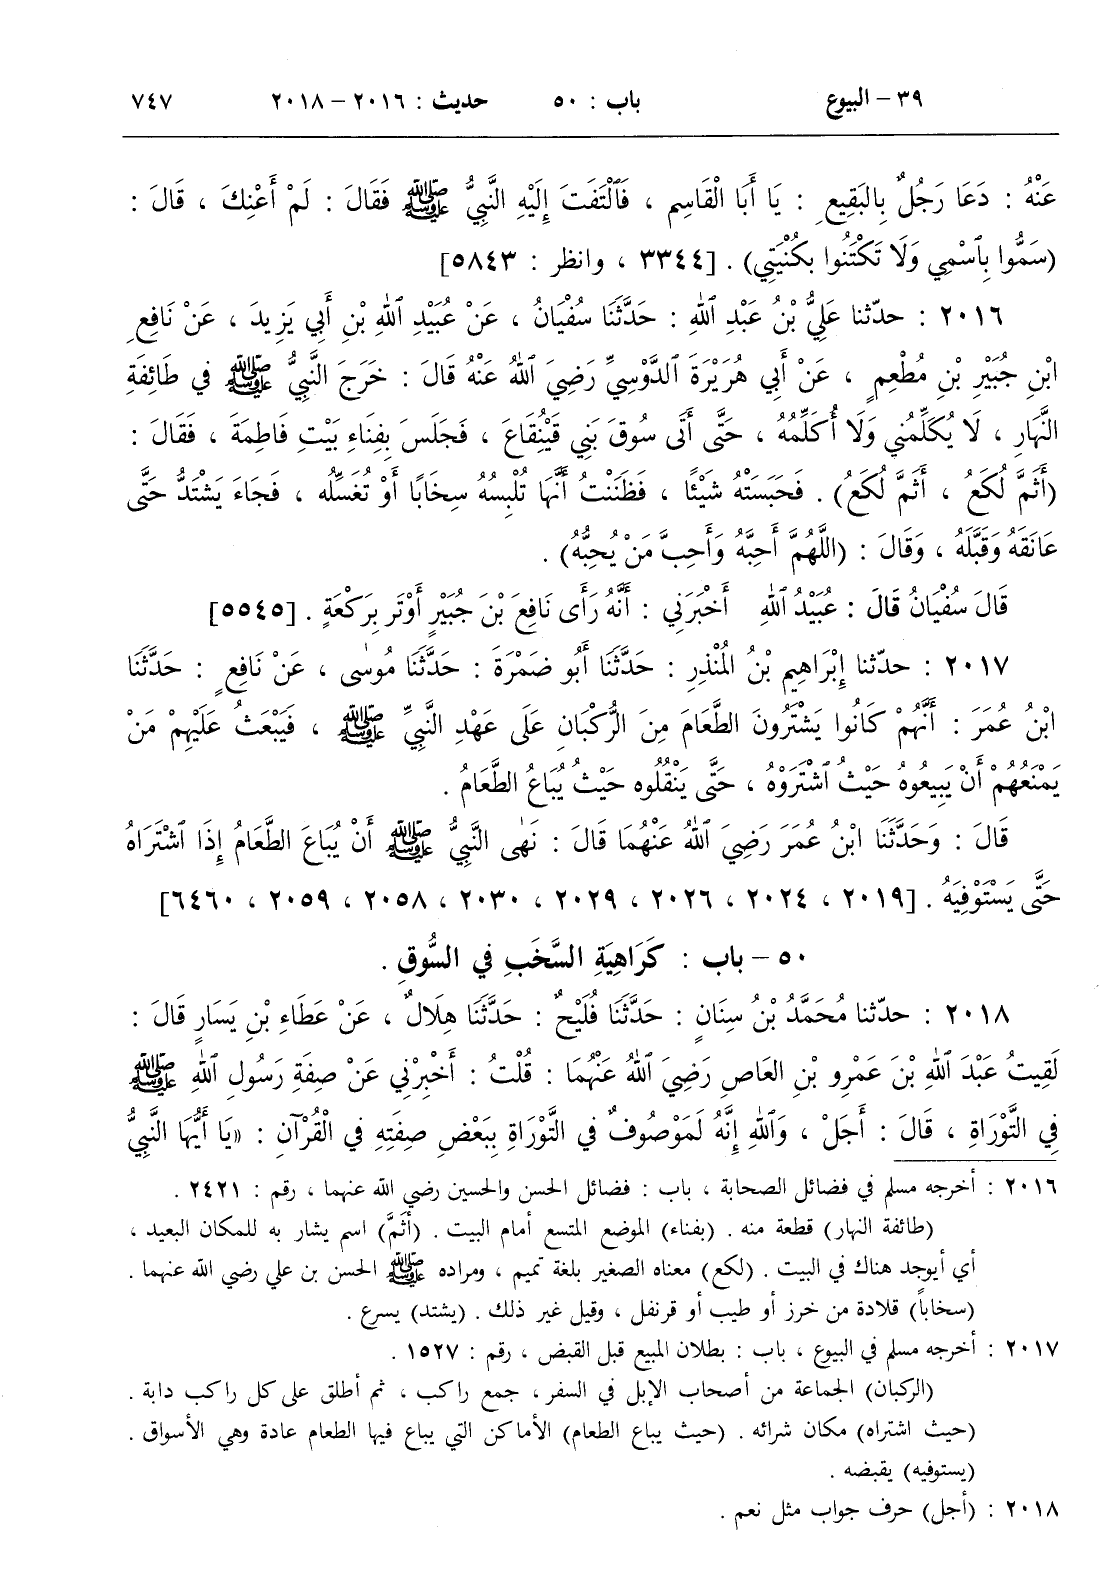 ٣٩ – البيوع باب : ٥٠ حديث : ٢٠١٦ – ٢٠١٨ ٧٤٧
عَنْهُ : دَعَا رَجُلٌ بِالبَقِيعِ : يَا أَبَا الْقَاسِمِ ، فَٱلْتَفَتَ إِلَيْهِ النَّبِيُّ ﷺ فَقَالَ : لَمْ أَعْنِكَ ، قَالَ :
(سَمُّوا بِٱسْمِي وَلَا تَكْتَنُوا بِكُنْيَتِي) . [٣٣٤٤ ، وانظر : ٥٨٤٣]
٢٠١٦ : حدّثنا عَلِيُّ بْنُ عَبْدِ ٱللهِ : حَدَّثَنَا سُفْيَانُ ، عَنْ عُبَيْدِ ٱللهِ بْنِ أَبِي يَزِيدَ ، عَنْ نَافِعِ
ابْنِ جُبَيْرِ بْنِ مُطْعِمٍ ، عَنْ أَبِي هُرَيْرَةَ ٱلدَّوْسِيِّ رَضِيَ ٱللهُ عَنْهُ قَالَ : خَرَجَ النَّبِيُّ ﷺ في طَائِفَةِ
النَّهَارِ ، لَا يُكَلِّمُنِي وَلَا أُكَلِّمُهُ ، حَتَّى أَتَى سُوقَ بَنِي قَيْنُقَاعَ ، فَجَلَسَ بِفِنَاءِ بَيْتِ فَاطِمَةَ ، فَقَالَ :
(أَثَمَّ لُكَعُ ، أَثَمَّ لُكَعُ) . فَحَبَسَتْهُ شَيْئًا ، فَظَنَنْتُ أَنَّهَا تُلْبِسُهُ سِخَابًا أَوْ تُغَسِّلُه ، فَجَاءَ يَشْتَدُّ حَتَّى
عَانَقَهُ وَقَبَّلَهُ ، وَقَالَ : (اللَّهُمَّ أَحِبَّهُ وَأَحِبَّ مَنْ يُحِبُّهُ) .
قَالَ سُفْيَانُ قَالَ : عُبَيْدُ ٱللهِ أَخْبَرَنِي : أَنَّهُ رَأَى نَافِعَ بْنَ جُبَيْرٍ أَوْتَر بِرَكْعَةٍ . [٥٥٤٥]
٢٠١٧ : حدّثنا إِبْرَاهِيمُ بْنُ المُنْذِرِ : حَدَّثَنَا أَبُو ضَمْرَةَ : حَدَّثَنَا مُوسَى ، عَنْ نَافِعٍ : حَدَّثَنَا
ابْنُ عُمَرَ : أَنَّهُمْ كَانُوا يَشْتَرُونَ الطَّعَامَ مِنَ الرُّكْبَانِ عَلَى عَهْدِ النَّبِيِّ ﷺ ، فَيَبْعَثُ عَلَيْهِمْ مَنْ
يَمْنَعُهُمْ أَنْ يَبِيعُوهُ حَيْثُ ٱشْتَرَوْهُ ، حَتَّى يَنْقُلُوه حَيْثُ يُبَاعُ الطَّعَامُ .
قَالَ : وَحَدَّثَنَا ابْنُ عُمَرَ رَضِيَ ٱللهُ عَنْهُمَا قَالَ : نَهَى النَّبِيُّ ﷺ أَنْ يُبَاعَ الطَّعَامُ إِذَا ٱشْتَرَاهُ
حَتَّى يَسْتَوْفِيَهُ . [٢٠١٩ ، ٢٠٢٤ ، ٢٠٢٦ ، ٢٠٢٩ ، ٢٠٣٠ ، ٢٠٥٨ ، ٢٠٥٩ ، ٦٤٦٠]
٥٠ – باب : كَرَاهِيَةِ السَّخَبِ في السُّوقِ .
٢٠١٨ : حدّثنا مُحَمَّدُ بْنُ سِنَانٍ : حَدَّثَنَا فُلَيْحٌ : حَدَّثَنَا هِلَالٌ ، عَنْ عَطَاءِ بْنِ يَسَارٍ قَالَ :
لَقِيتُ عَبْدَ ٱللهِ بْنَ عَمْرِو بْنِ العَاصِ رَضِيَ ٱللهُ عَنْهُمَا : قُلْتُ : أَخْبِرْنِي عَنْ صِفَةِ رَسُولِ ٱللهِ ﷺ
فِي التَّوْرَاةِ ، قَالَ : أَجَلْ ، وَٱللهِ إِنَّهُ لَمَوْصُوفٌ في التَّوْرَاةِ بِبَعْضِ صِفَتِهِ في الْقُرْآنِ : «يَا أَيُّهَا النَّبِيُّ
٢٠١٦ : أخرجه مسلم في فضائل الصحابة ، باب : فضائل الحسن والحسين رضي الله عنهما ، رقم : ٢٤٢١ .
(طائفة النهار) قطعة منه . (بفناء) الموضع المتسع أمام البيت . (أثَمَّ) اسم يشار به للمكان البعيد ،
أي أيوجد هناك في البيت . (لكع) معناه الصغير بلغة تميم ، ومراده ﷺ الحسن بن علي رضي الله عنهما .
(سخاباً) قلادة من خرز أو طيب أو قرنفل ، وقيل غير ذلك . (يشتد) يسرع .
٢٠١٧ : أخرجه مسلم في البيوع ، باب : بطلان المبيع قبل القبض ، رقم : ١٥٢٧ .
(الركبان) الجماعة من أصحاب الإبل في السفر ، جمع راكب ، ثم أطلق على كل راكب دابة .
(حيث اشتراه) مكان شرائه . (حيث يباع الطعام) الأماكن التي يباع فيها الطعام عادة وهي الأسواق .
(يستوفيه) يقبضه .
٢٠١٨ : (أجل) حرف جواب مثل نعم .